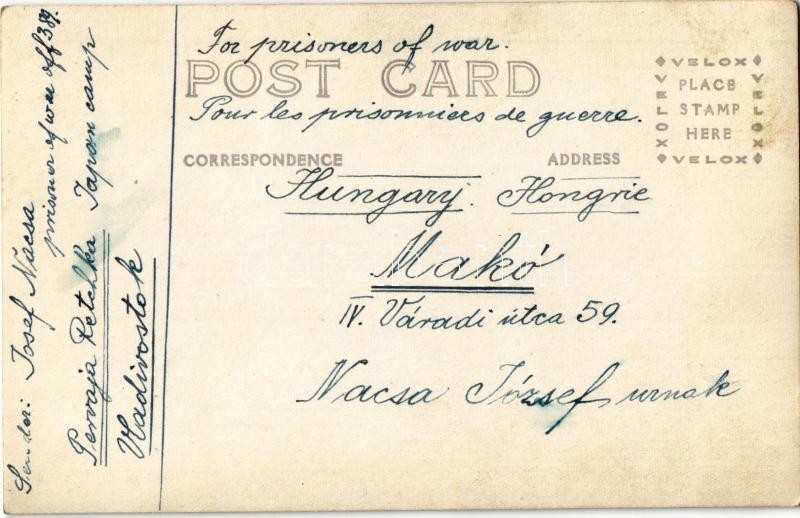 For prisoners of war.
POST CARD
Pour les prisonniers de guerre.
VELOX
VELOX PLACE VELOX
STAMP
HERE
VELOX
CORRESPONDENCE ADDRESS
Hungary. Hongrie
Makó
IV. Váradi útca 59.
Nacsa József urnak
Sender: Josef Nacsa
prisoner of war off 389.
Pervaja Retchka Japan camp
Vladivostok